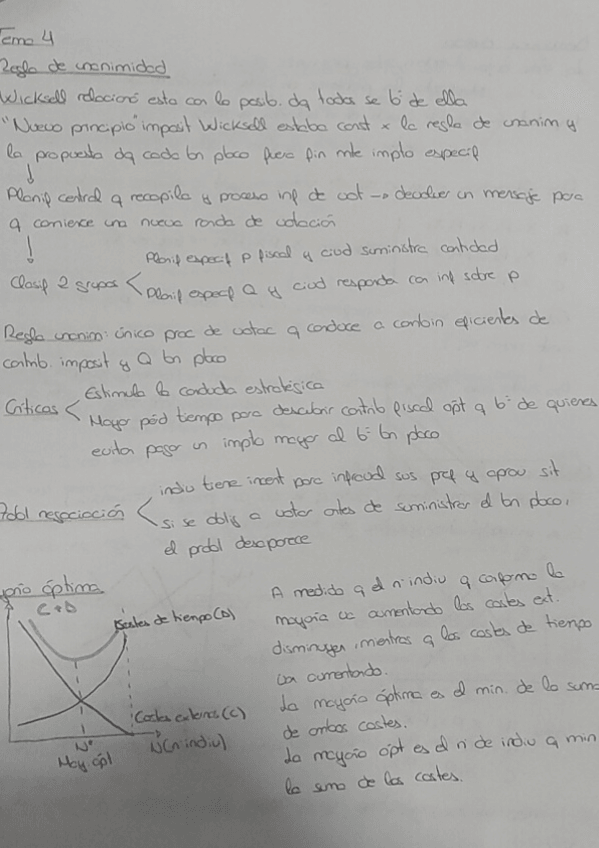 Tema 4
Regla de unanimidad
Wicksell relacionó esta con la posib. dq todos se bº de ella
"Nuevo principio" imposit Wicksell estaba const x la regla de unanim y
la propuesta dq cada bn pbco fuera fin mte impto especif
Planif central q recopila y procesa inf de vot → devolver un mensaje para
q comience una nueva ronda de votación
Clasif 2 grupos
Planif especif p fiscal y ciud suministra cantidad
Planif especif Q y ciud responda con inf sobre p
Regla unanim: único proc de votac q conduce a combin eficientes de
contrib. imposit y Q bn pbco
Críticas
Estimula la conducta estratégica
Mayor pérd tiempo para descubrir contrib fiscal opt q bº de quienes
evitan pagar un impto mayor al bº bn pbco
Probl negociación
indiv tiene incent para infraval sus pref y aprov sit
si se oblig a votar antes de suministrar el bn pbco,
el probl desaparece
óptima
C + D
Costes de tiempo (D)
Costes externos (C)
N*
N (nº indiv)
May. ópt
A medida q el nº indiv q conforma la
mayoría va aumentando los costes ext.
disminuyen, mientras q los costes de tiempo
van aumentando.
La mayoría óptima es el min. de la suma
de ambos costes.
La mayoría ópt es el nº de indiv q min
la suma de los costes.